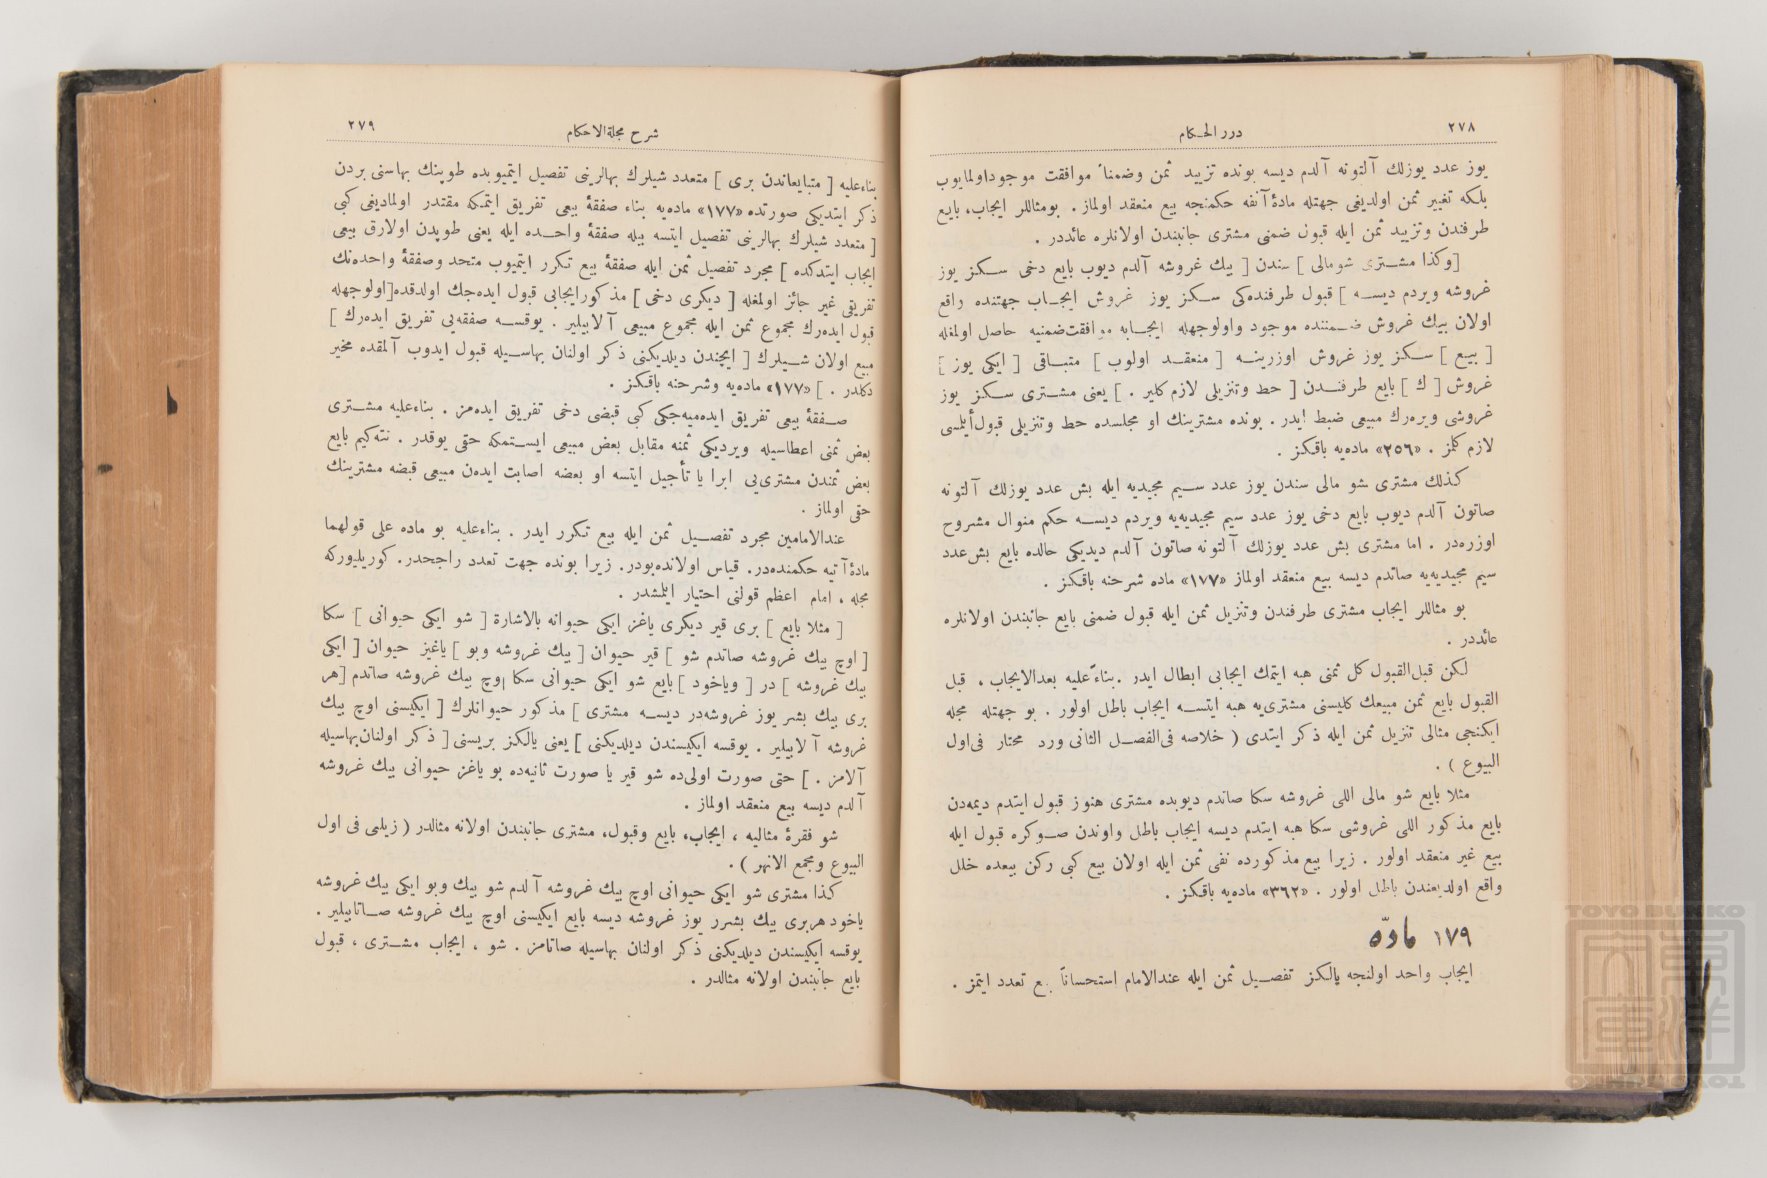 ٢٧٨
درر الحكام
يوز عدد يوزلك آلتونه آلدم ديسه بونده تزييد ثمن وضمناً موافقت موجوداولمايوب
بلكه تغيير ثمن اولديغى جهتله مادۀ آنفه حكمنجه بيع منعقد اولماز . بومثاللر ايجاب، بايع
طرفندن وتزييد ثمن ايله قبول ضمنى مشترى جانبندن اولانلره عائددر .
[وكذا مشترى شومالى] سندن [ بيك غروشه آلدم ديوب بايع دخى سكز يوز
غروشه ويردم ديسه ] قبول طرفنده‌كى سكز يوز غروش ايجاب جهتنده واقع
اولان بيك غروش ضمننده موجود واولوجهله ايجابه موافقت‌ضمنيه حاصل اولمغله
[ بيع ] سكز يوز غروش اوزرينه [ منعقد اولوب ] متباقى [ ايكى يوز ]
غروش [ ك ] بايع طرفندن [ حط وتنزيلى لازم كلير . ] يعنى مشترى سكز يوز
غروشى ويره‌رك مبيعى ضبط ايدر . بونده مشترينك او مجلسده حط وتنزيلى قبول‌أيلمسى
لازم كلمز . «٢٥٦» ماده‌يه باقكز .
كذلك مشترى شو مالى سندن يوز عدد سيم مجيديه ايله بش عدد يوزلك آلتونه
صاتون آلدم ديوب بايع دخى يوز عدد سيم مجيديه‌يه ويردم ديسه حكم منوال مشروح
اوزره‌در . اما مشترى بش عدد يوزلك آلتونه صاتون آلدم ديديكى حالده بايع بش‌عدد
سيم مجيديه‌يه صاتدم ديسه بيع منعقد اولماز «١٧٧» ماده شرحنه باقكز .
بو مثاللر ايجاب مشترى طرفندن وتنزيل ثمن ايله قبول ضمنى بايع جانبندن اولانلره
عائددر .
لكن قبل‌القبول كل ثمنى هبه ايتمك ايجابى ابطال ايدر .بناءً عليه بعدالايجاب ، قبل
القبول بايع ثمن مبيعك كليسنى مشترى‌يه هبه ايتسه ايجاب باطل اولور . بو جهتله مجله
ايكنجى مثالى تنزيل ثمن ايله ذكر ايتدى ( خلاصه فى‌الفصل الثانى ورد محتار فى‌اول
البيوع ) .
مثلا بايع شو مالى اللى غروشه سكا صاتدم ديوبده مشترى هنوز قبول ايتدم ديمه‌دن
بايع مذكور اللى غروشى سكا هبه ايتدم ديسه ايجاب باطل واوندن صوكره قبول ايله
بيع غير منعقد اولور . زيرا بيع مذكورده نفى ثمن ايله اولان بيع كبى ركن بيعده خلل
واقع اولديغندن باطل اولور . «٣٦٢» ماده‌يه باقكز .
١٧٩ مادّه
ايجاب واحد اولنجه يالكز تفصيل ثمن ايله عندالامام استحساناً بيع تعدد ايتمز .
شرح مجلةالاحكام
٢٧٩
بناءعليه [ متبايعاندن برى ] متعدد شيلرك بهالرينى تفصيل ايتميوبده طوپنك بهاسنى بردن
ذكر ايتديكى صورتده «١٧٧» ماده‌يه بناء صفقۀ بيعى تفريق ايتمكه مقتدر اولماديغى كبى
[ متعدد شيلرك بهالرينى تفصيل ايتسه بيله صفقۀ واحده ايله يعنى طوپدن اولارق بيعى
ايجاب ايتدكده ] مجرد تفصيل ثمن ايله صفقۀ بيع تكرر ايتميوب متحد وصفقۀ واحده‌نك
تفريقى غير جائز اولمغله [ ديكرى دخى ] مذكورايجابى قبول ايده‌جك اولدقده[اولوجهله
قبول ايده‌رك مجموع ثمن ايله مجموع مبيعى آلابيلير . يوقسه صفقه‌يى تفريق ايده‌رك ]
مبيع اولان شيلرك [ ايچندن ديلديكنى ذكر اولنان بهاسيله قبول ايدوب آلمقده مخير
دكلدر . ] «١٧٧» ماده‌يه وشرحنه باقكز .
صفقۀ بيعى تفريق ايده‌ميه‌جكى كبى قبضى دخى تفريق ايده‌مز . بناءعليه مشترى
بعض ثمنى اعطاسيله ويرديكى ثمنه مقابل بعض مبيعى ايستمكه حقى يوقدر . نته‌كيم بايع
بعض ثمندن مشترى‌يى ابرا يا تأجيل ايتسه او بعضه اصابت ايدەن مبيعى قبضه مشترينك
حقى اولماز .
عندالامامين مجرد تفصيل ثمن ايله بيع تكرر ايدر . بناءعليه بو ماده على قولهما
مادۀ آتيه حكمنده‌در. قياس اولانده‌بودر. زيرا بونده جهت تعدد راجحدر. كوريليوركه
مجله ، امام اعظم قولنى اختيار ايلمشدر .
[ مثلا بايع ] برى قير ديكرى ياغز ايكى حيوانه بالاشارة [ شو ايكى حيوانى ] سكا
[ اوچ بيك غروشه صاتدم شو ] قير حيوان [ بيك غروشه وبو ] ياغيز حيوان [ ايكى
بيك غروشه ] در [ وياخود ] بايع شو ايكى حيوانى سكا اوچ بيك غروشه صاتدم [هر
برى بيك بشر يوز غروشه‌در ديسه مشترى ] مذكور حيوانلرك [ ايكيسنى اوچ بيك
غروشه آلابيلير . يوقسه ايكيسندن ديلديكنى ] يعنى يالكز بريسنى [ ذكر اولنان‌بهاسيله
آلامز . ] حتى صورت اولى‌ده شو قير يا صورت ثانيه‌ده بو ياغز حيوانى بيك غروشه
آلدم ديسه بيع منعقد اولماز .
شو فقرۀ مثاليه ، ايجاب، بايع وقبول، مشترى جانبندن اولانه مثالدر ( زيلعى فى اول
البيوع ومجمع الانهر ) .
كذا مشترى شو ايكى حيوانى اوچ بيك غروشه آلدم شو بيك وبو ايكى بيك غروشه
ياخود هربرى بيك بشرر يوز غروشه ديسه بايع ايكيسنى اوچ بيك غروشه صاتابيلير .
يوقسه ايكيسندن ديلديكنى ذكر اولنان بهاسيله صاتامز . شو ، ايجاب مشترى ، قبول
بايع جانبندن اولانه مثالدر .
TOYO BUNKO
東洋文庫
TOYO BUNKO